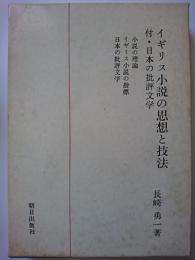 イギリス小説の思想と技法
付・日本の批評文学
小説の理論
イギリス小説の指標
日本の批評文学
長崎勇一著
朝日出版社